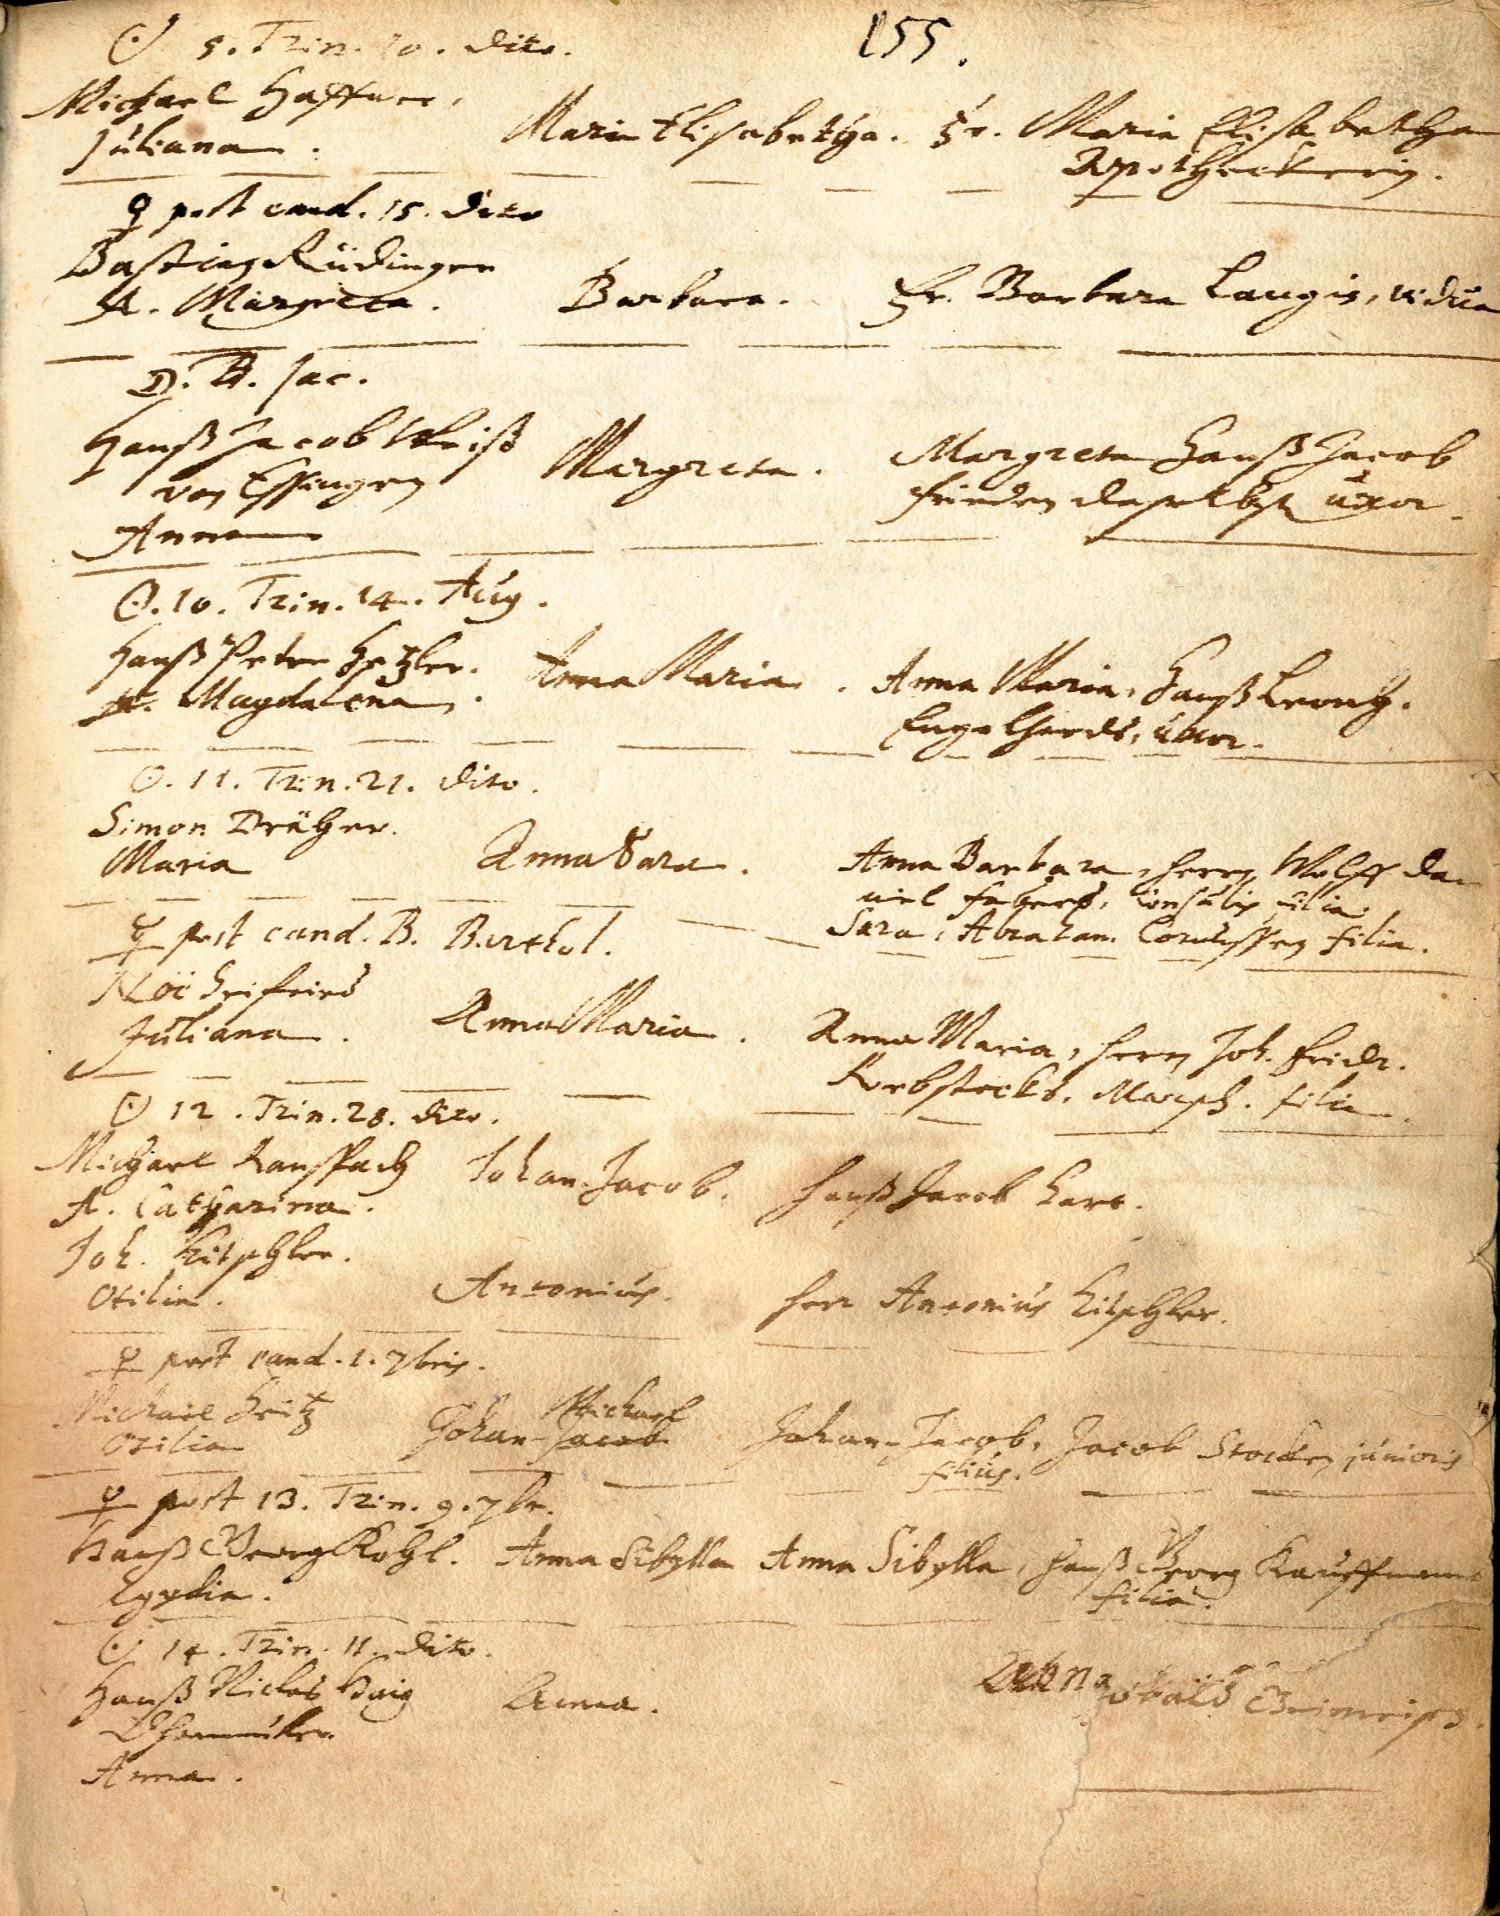 155.
☉ 5. Trin. 10. dito.
Michael Haffner,
Juliana.
Maria Elisabetha.
Fr. Maria Elisabetha
Apotheckerin.
♀ post cand. 15. dito
Basting Rüdinger
A. Margreta.
Barbara.
Fr. Barbara Laugin, vidua
D. B. Jac.
Hanß Jacob Weiß
von Essingen
Anna
Margreta.
Margreta Hanß Jacob
Frieden daselbst uxor.
☉. 10. Trin. 14. Aug.
Hanß Peter Hetzler.
A. Magdalena.
Anna Maria.
Anna Maria, Hanß Leonh.
Engelhards, uxor.
☉. 11. Trin. 21. dito.
Simon Dräher.
Maria
Anna Sara.
Anna Barbara, Herrn Wolff Da-
niel Fabers, Consulis filia.
Sara, Abraham filia.
♀ post cand. B. Barthol.
Noë Seifried
Juliana.
Anna Maria.
Anna Maria, Herrn Joh. Fridr.
Korbstocks, filia.
☉ 12. Trin. 28. dito.
Michael Ranspach
A. Catharina.
Johan Jacob.
Hanß Jacob
Joh. Hitschler.
Otilia.
Antonius.
Herr Antonius Hitschler.
♀ post cand. 1. 7bris.
Michael
Otilia
Michael
Johan-Jacob
Johan-Jacob, Jacob Stocken junioris
filius.
♀ post 13. Trin. 9. 7br.
Hanß Georg Kohl.
Egydia.
Anna Sibylla
Anna Sibylla, Hanß Georg Kauffmans
filia.
☉ 14. Trin. 11. dito.
Hanß Niclas
Anna.
Anna.
Anna